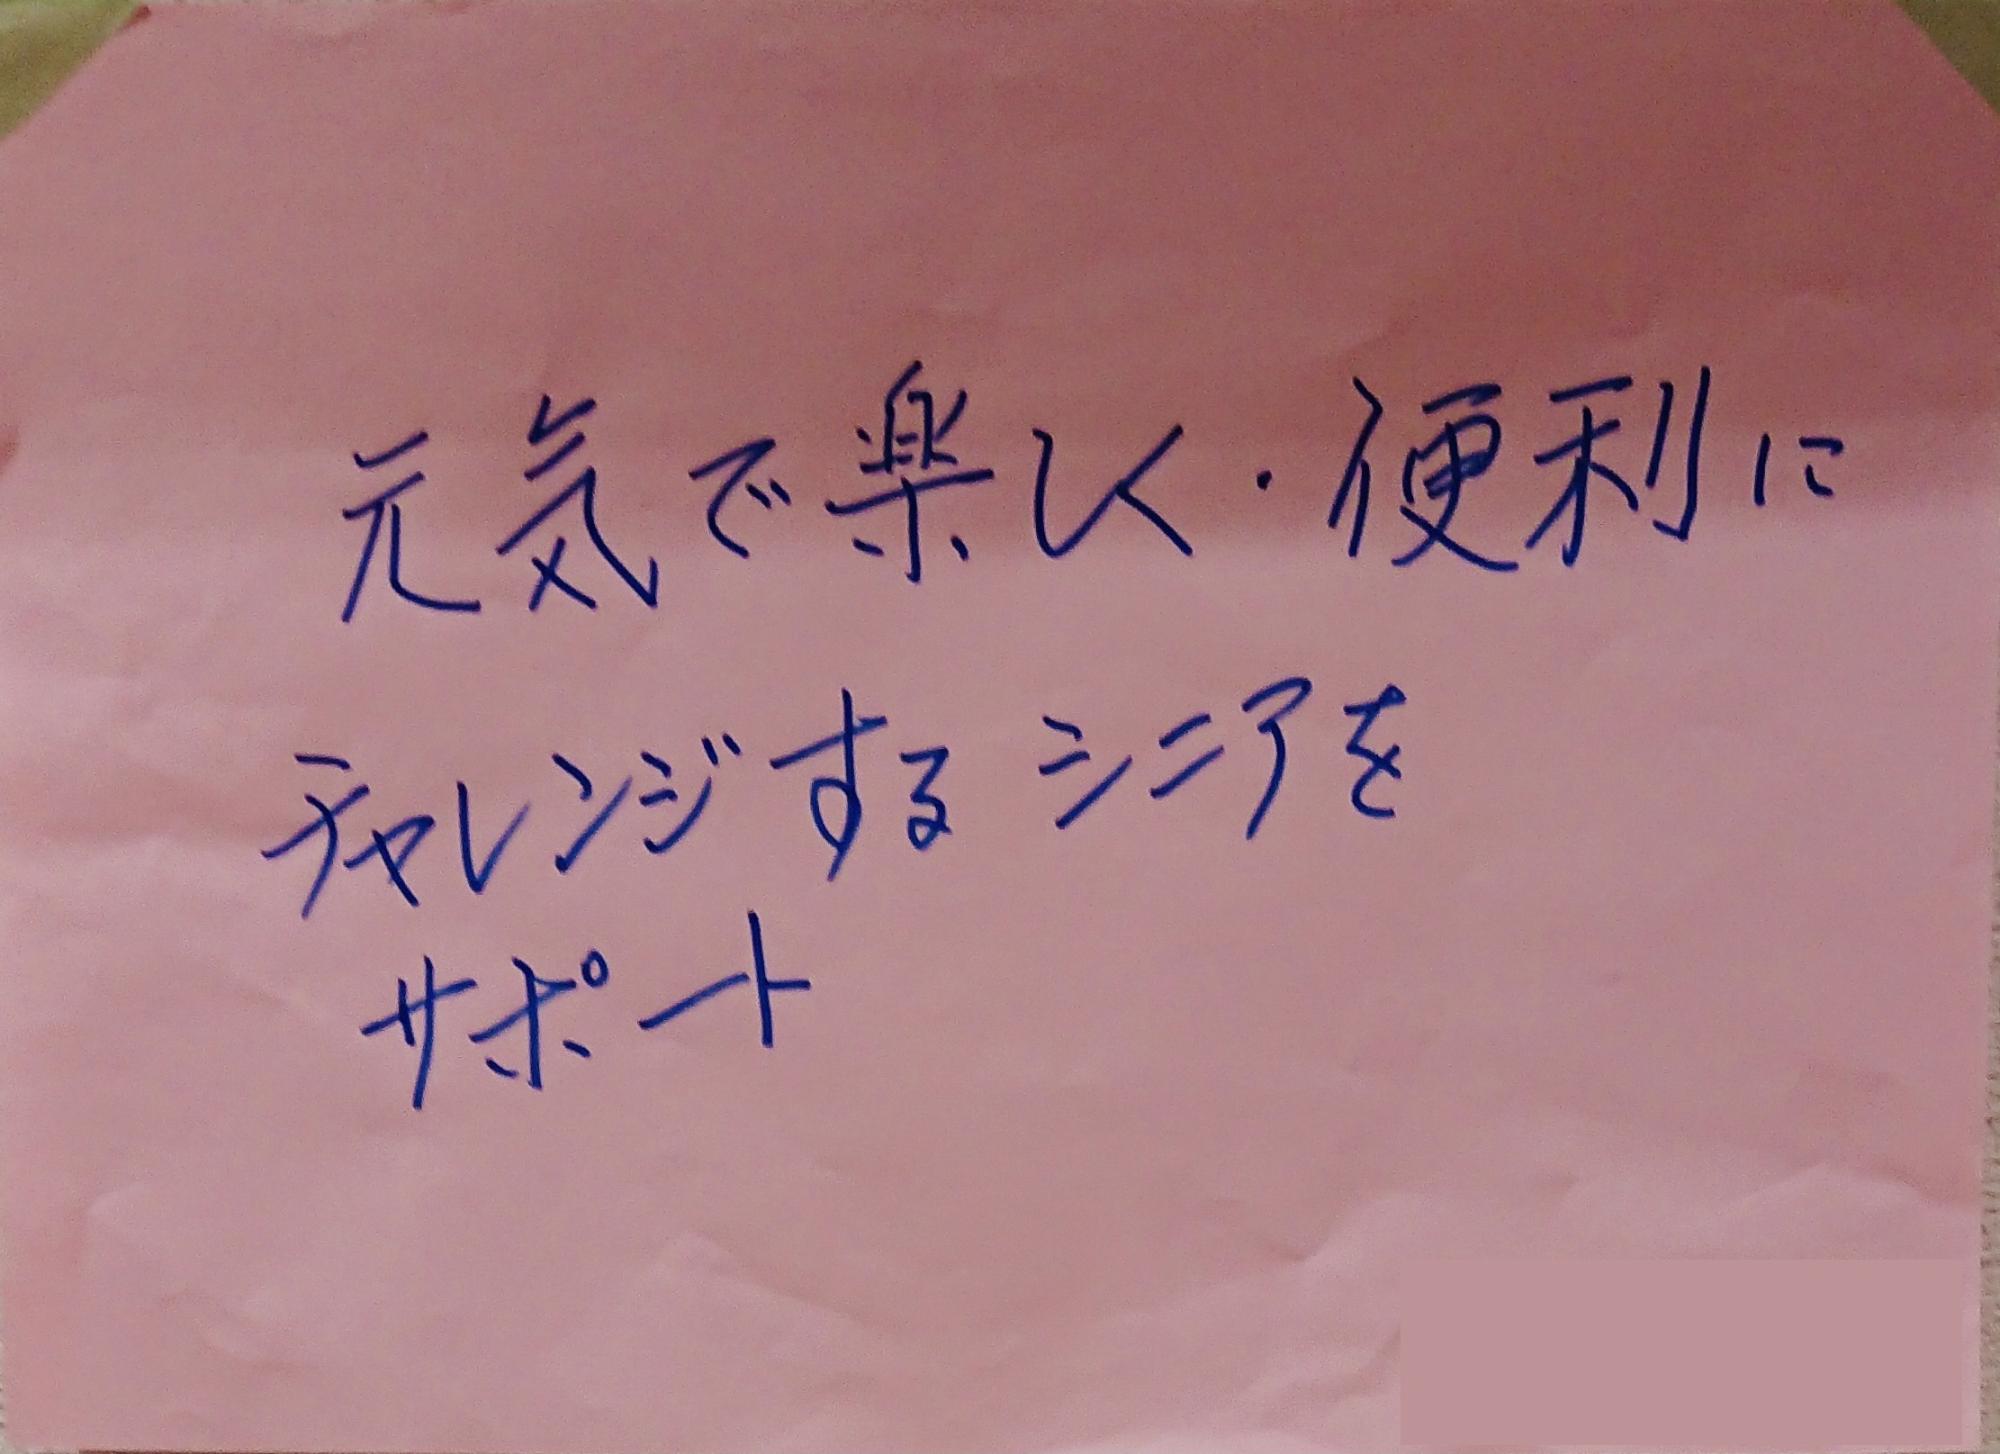 元気で楽しく・便利に
チャレンジするシニアを
サポート